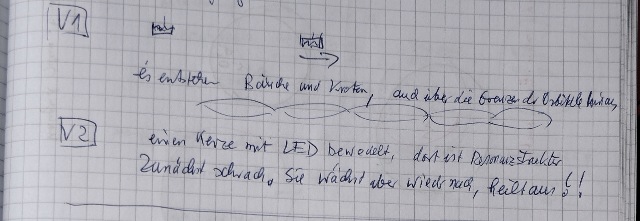 V1
es entstehen Bäuche und Knoten, auch über die Grenze der hinaus,
V2
einen Kerze mit LED bewedelt, dort ist Resonanzstruktur
Zunächst schwach. Sie wächst aber wieder nach, heilt aus!!